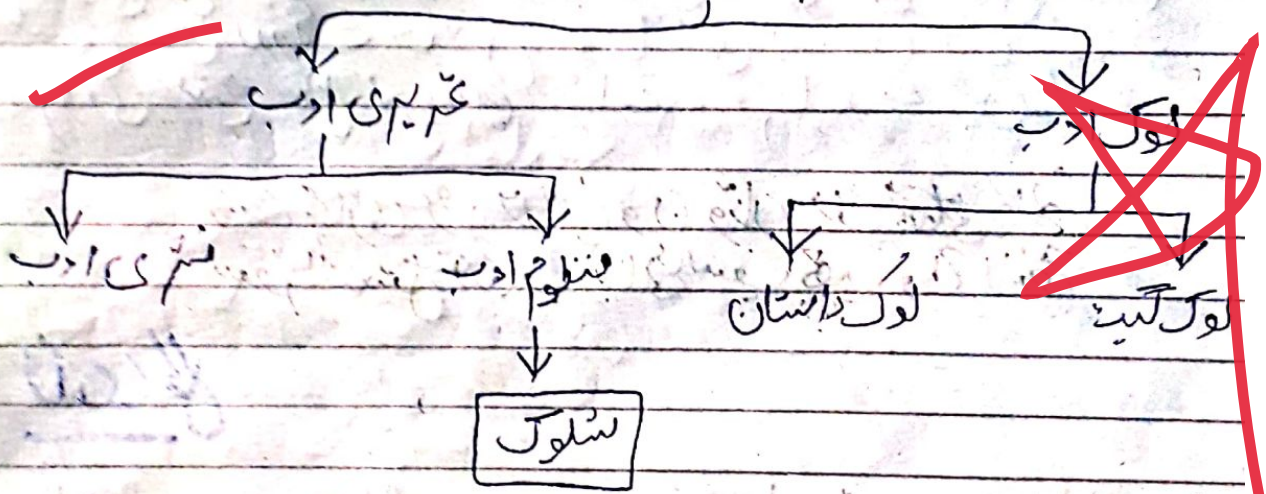 لوک ادب
تحریری ادب
لوک گیت
لوک داستان
منظوم ادب
نثری ادب
شلوک